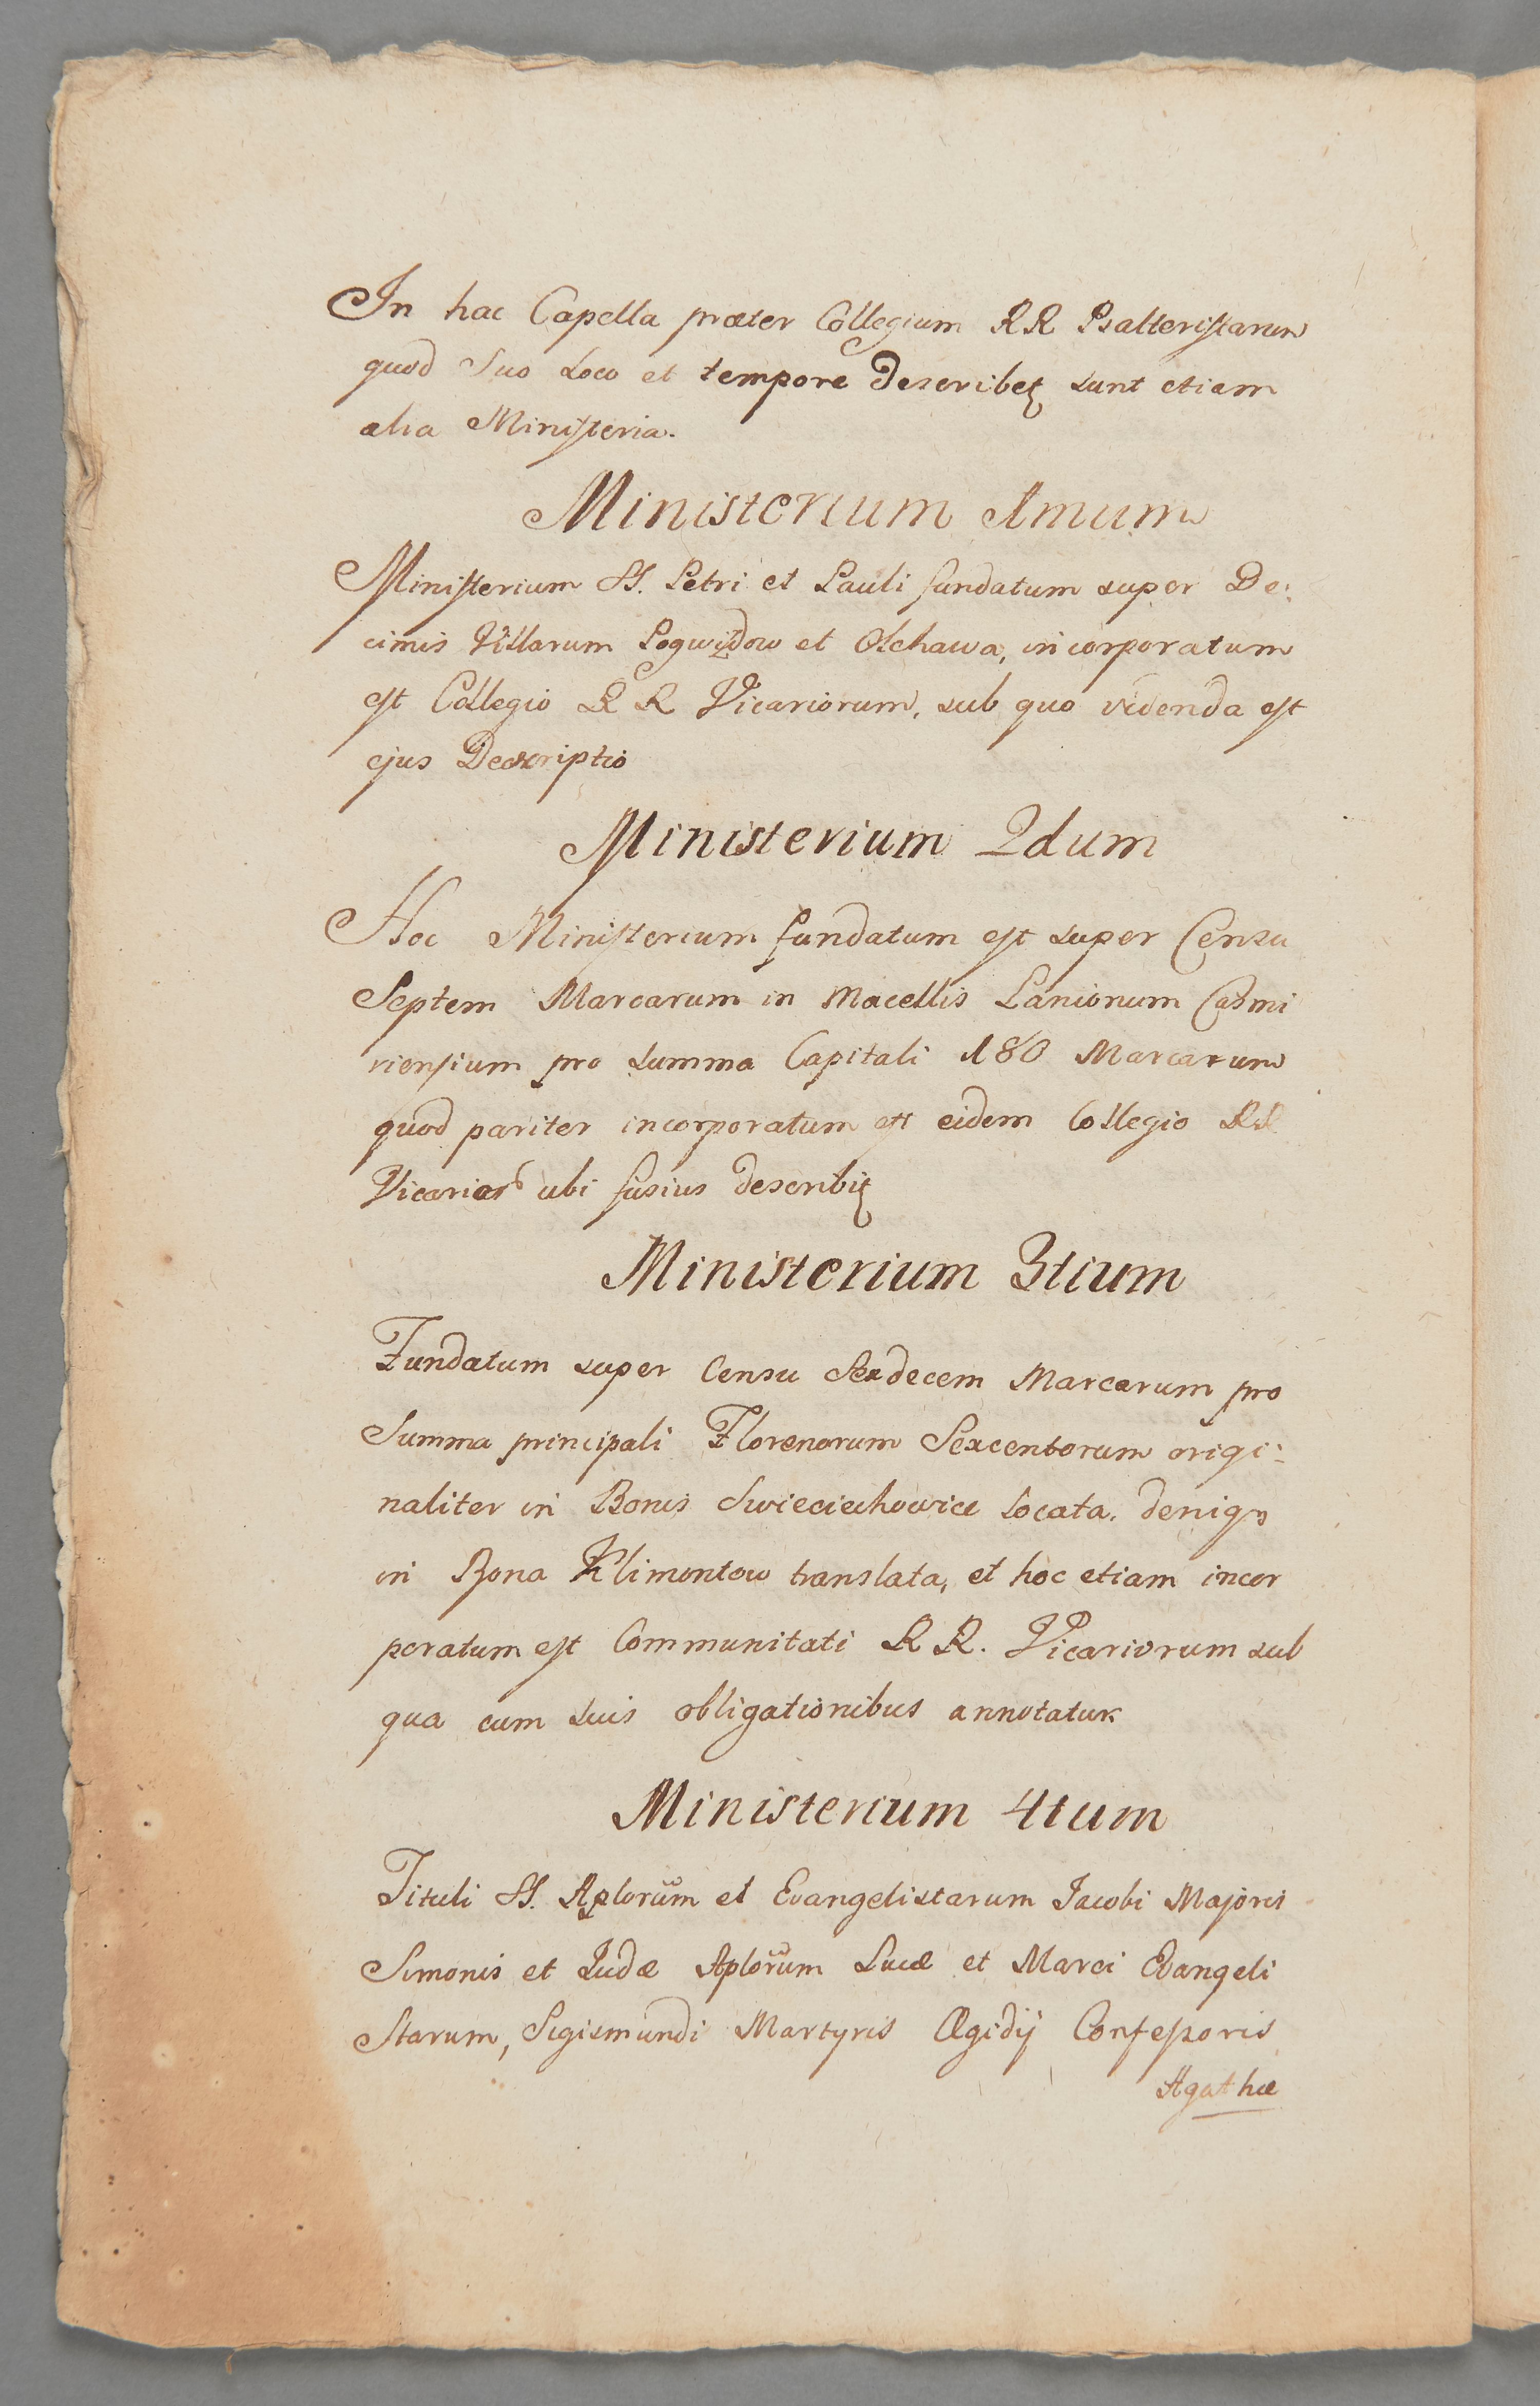 In hac Capella præter Collegium RR Psalteristarum
quod Suo Loco et tempore describetꝛ sunt etiam
alia Ministeria.
Ministerium 1mum
Ministerium SS. Petri et Pauli fundatum super De:
cimis Villarum Pogwizdow et Olchawa, incorporatum
est Collegio RR Vicariorum, sub quo videnda est
ejus Descriptio
Ministerium 2dum
Hoc Ministerium fundatum est super Censu
Septem Marcarum in Macellis Lanionum Casimi
riensium pro summa Capitali 180 Marcarum
quod pariter incorporatum est eidem Collegio RR
ubi fusius describitꝛ
Ministerium 3tium
Fundatum super Censu Sexdecem Marcarum pro
Summa principali Florenorum Sexcentorum origi:
naliter in Bonis Swieciechowice locata, deniqꝫ
in Bona Klimontow translata, et hoc etiam incor
poratum est Communitati RR. Vicariorum sub
qua cum suis obligationibus annotatur
Ministerium 4tum
Tituli SS. Aplorum et Evangelistarum Iacobi Majoris
Simonis et Iudæ Aplorum Lucæ et Marci Evangeli
starum, Sigismundi Martyris Ægidij Confessoris
Agathæ